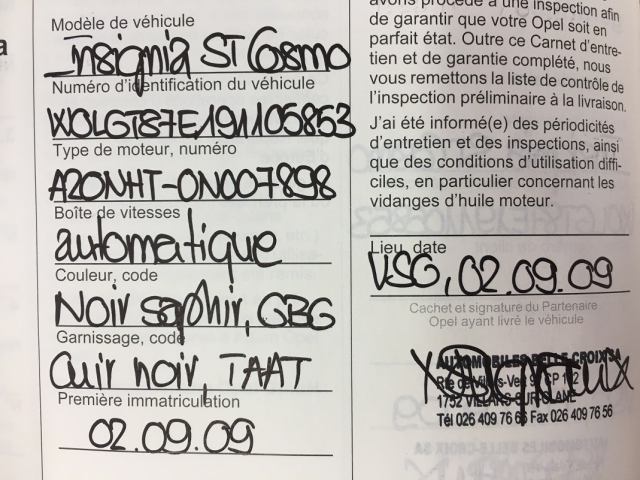 Modèle de véhicule
Insignia ST Cosmo
Numéro d'identification du véhicule
W0LGT87E191105853
Type de moteur, numéro
A20NHT-0N007898
Boîte de vitesses
automatique
Couleur, code
Noir saphir, GBG
Garnissage, code
Cuir noir, TAAT
Première immatriculation
02.09.09
avons procédé à une inspection afin
de garantir que votre Opel soit en
parfait état. Outre ce Carnet d'entre-
tien et de garantie complété, nous
vous remettons la liste de contrôle de
l'inspection préliminaire à la livraison.
J'ai été informé(e) des périodicités
d'entretien et des inspections, ainsi
que des conditions d'utilisation diffi-
ciles, en particulier concernant les
vidanges d'huile moteur.
Lieu, date
VSG, 02.09.09
Cachet et signature du Partenaire
Opel ayant livré le véhicule
AUTOMOBILES BELLE-CROIX SA
Rte de Villars-Vert
1752 VILLARS-SUR-GLANE
Tél 026 409 76 66 Fax 026 409 76 56